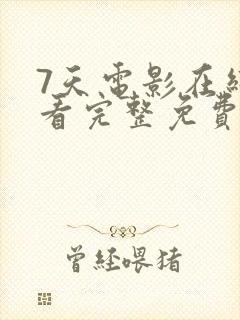 7天电影在线
看完整免费
曾经喂猪